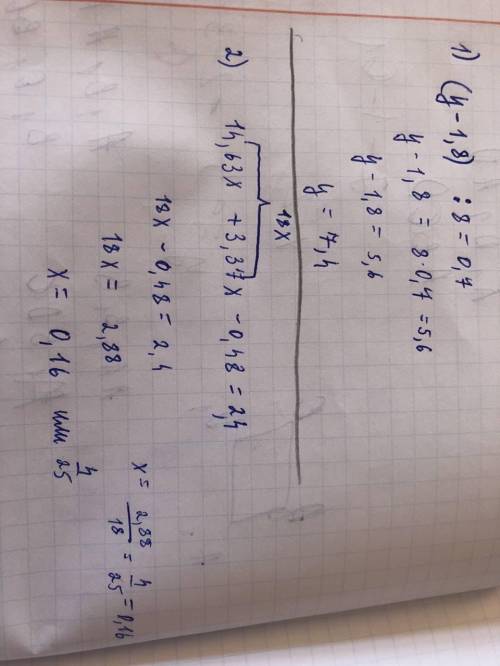 1) (y - 1,8) : 8 = 0,7
y - 1,8 = 8·0,7 = 5,6
y - 1,8 = 5,6
y = 7,4
18x
2) 14,63x + 3,37x - 0,48 = 2,4
18x - 0,48 = 2,4
18x = 2,88
x = 0,16 или 4/25
x = 2,88/18 = 4/25 = 0,16